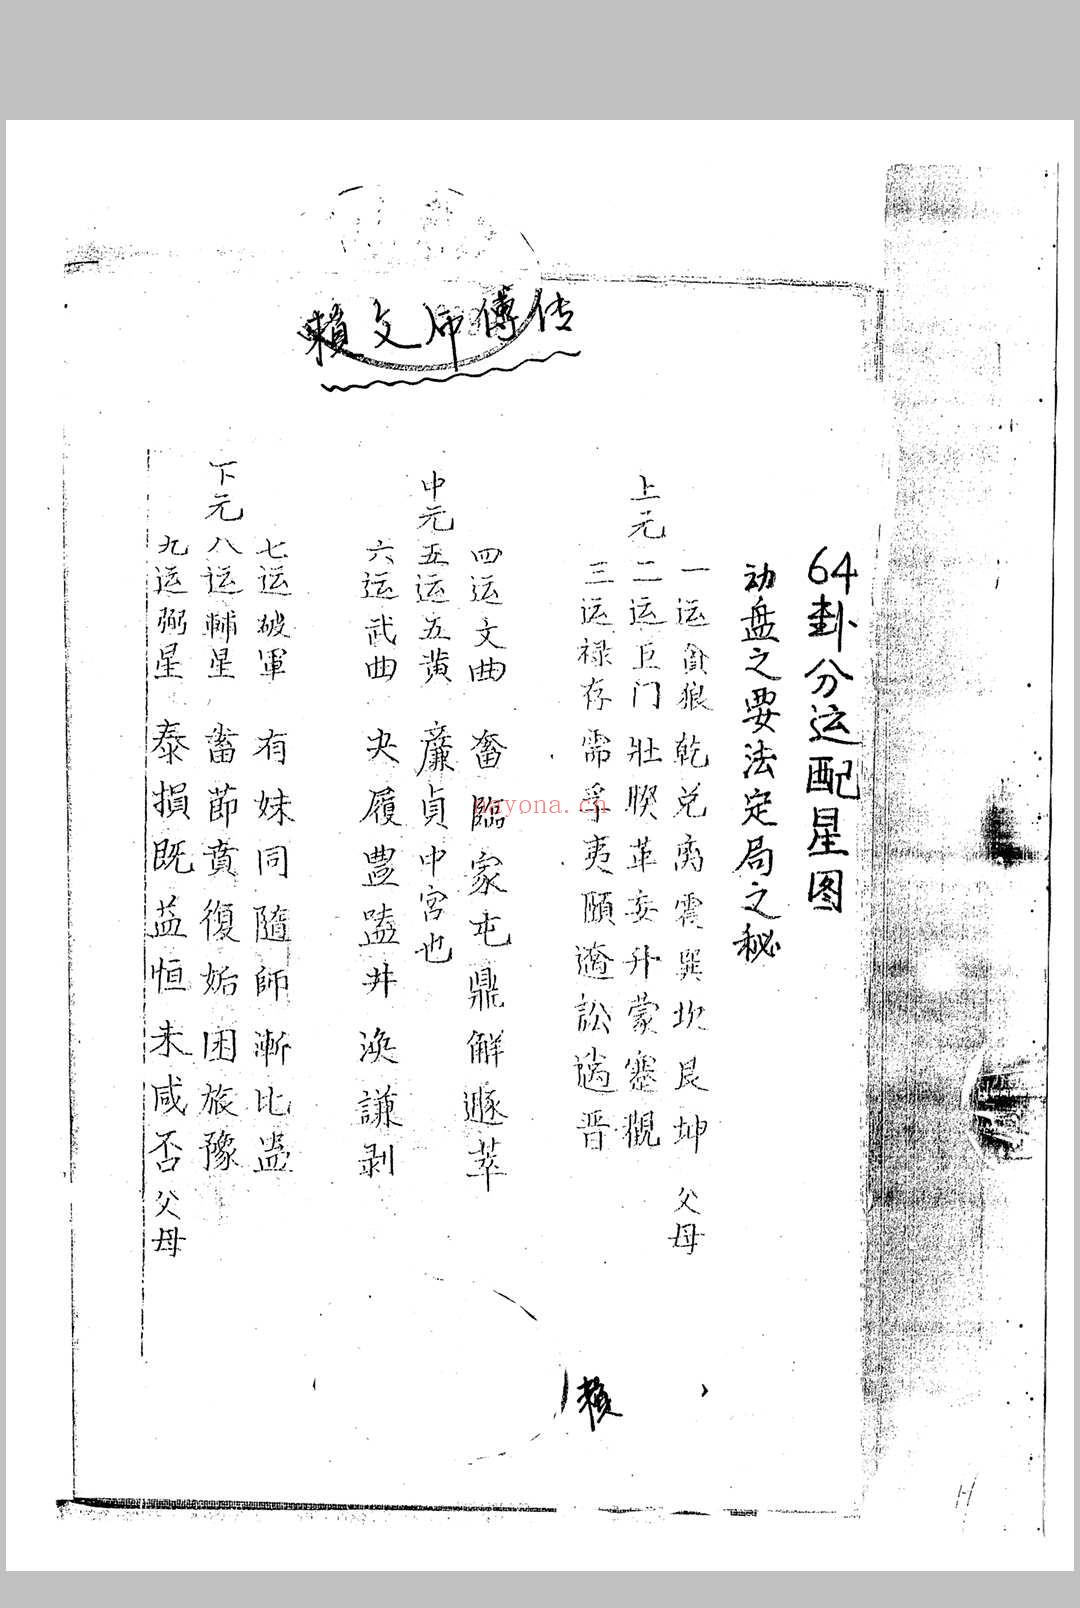 賴文师傅传
64卦分运配星图
动盘之要法定局之秘
上元
一运貪狼 乾兑离震巽坎艮坤 父母
二运巨门 壯睽革妄升蒙蹇觀
三运禄存 需孚夷頤過訟過晋
中元
四运文曲 畜臨家屯鼎解遯萃
五运五黄 廉貞中宮也
六运武曲 夬履豊嗑井涣謙剥
下元
七运破軍 有妹同隨師漸比蛊
八运輔星 畜節賁復姤困旅豫
九运弼星 泰損既益恒未咸否 父母
賴
nayona.cn